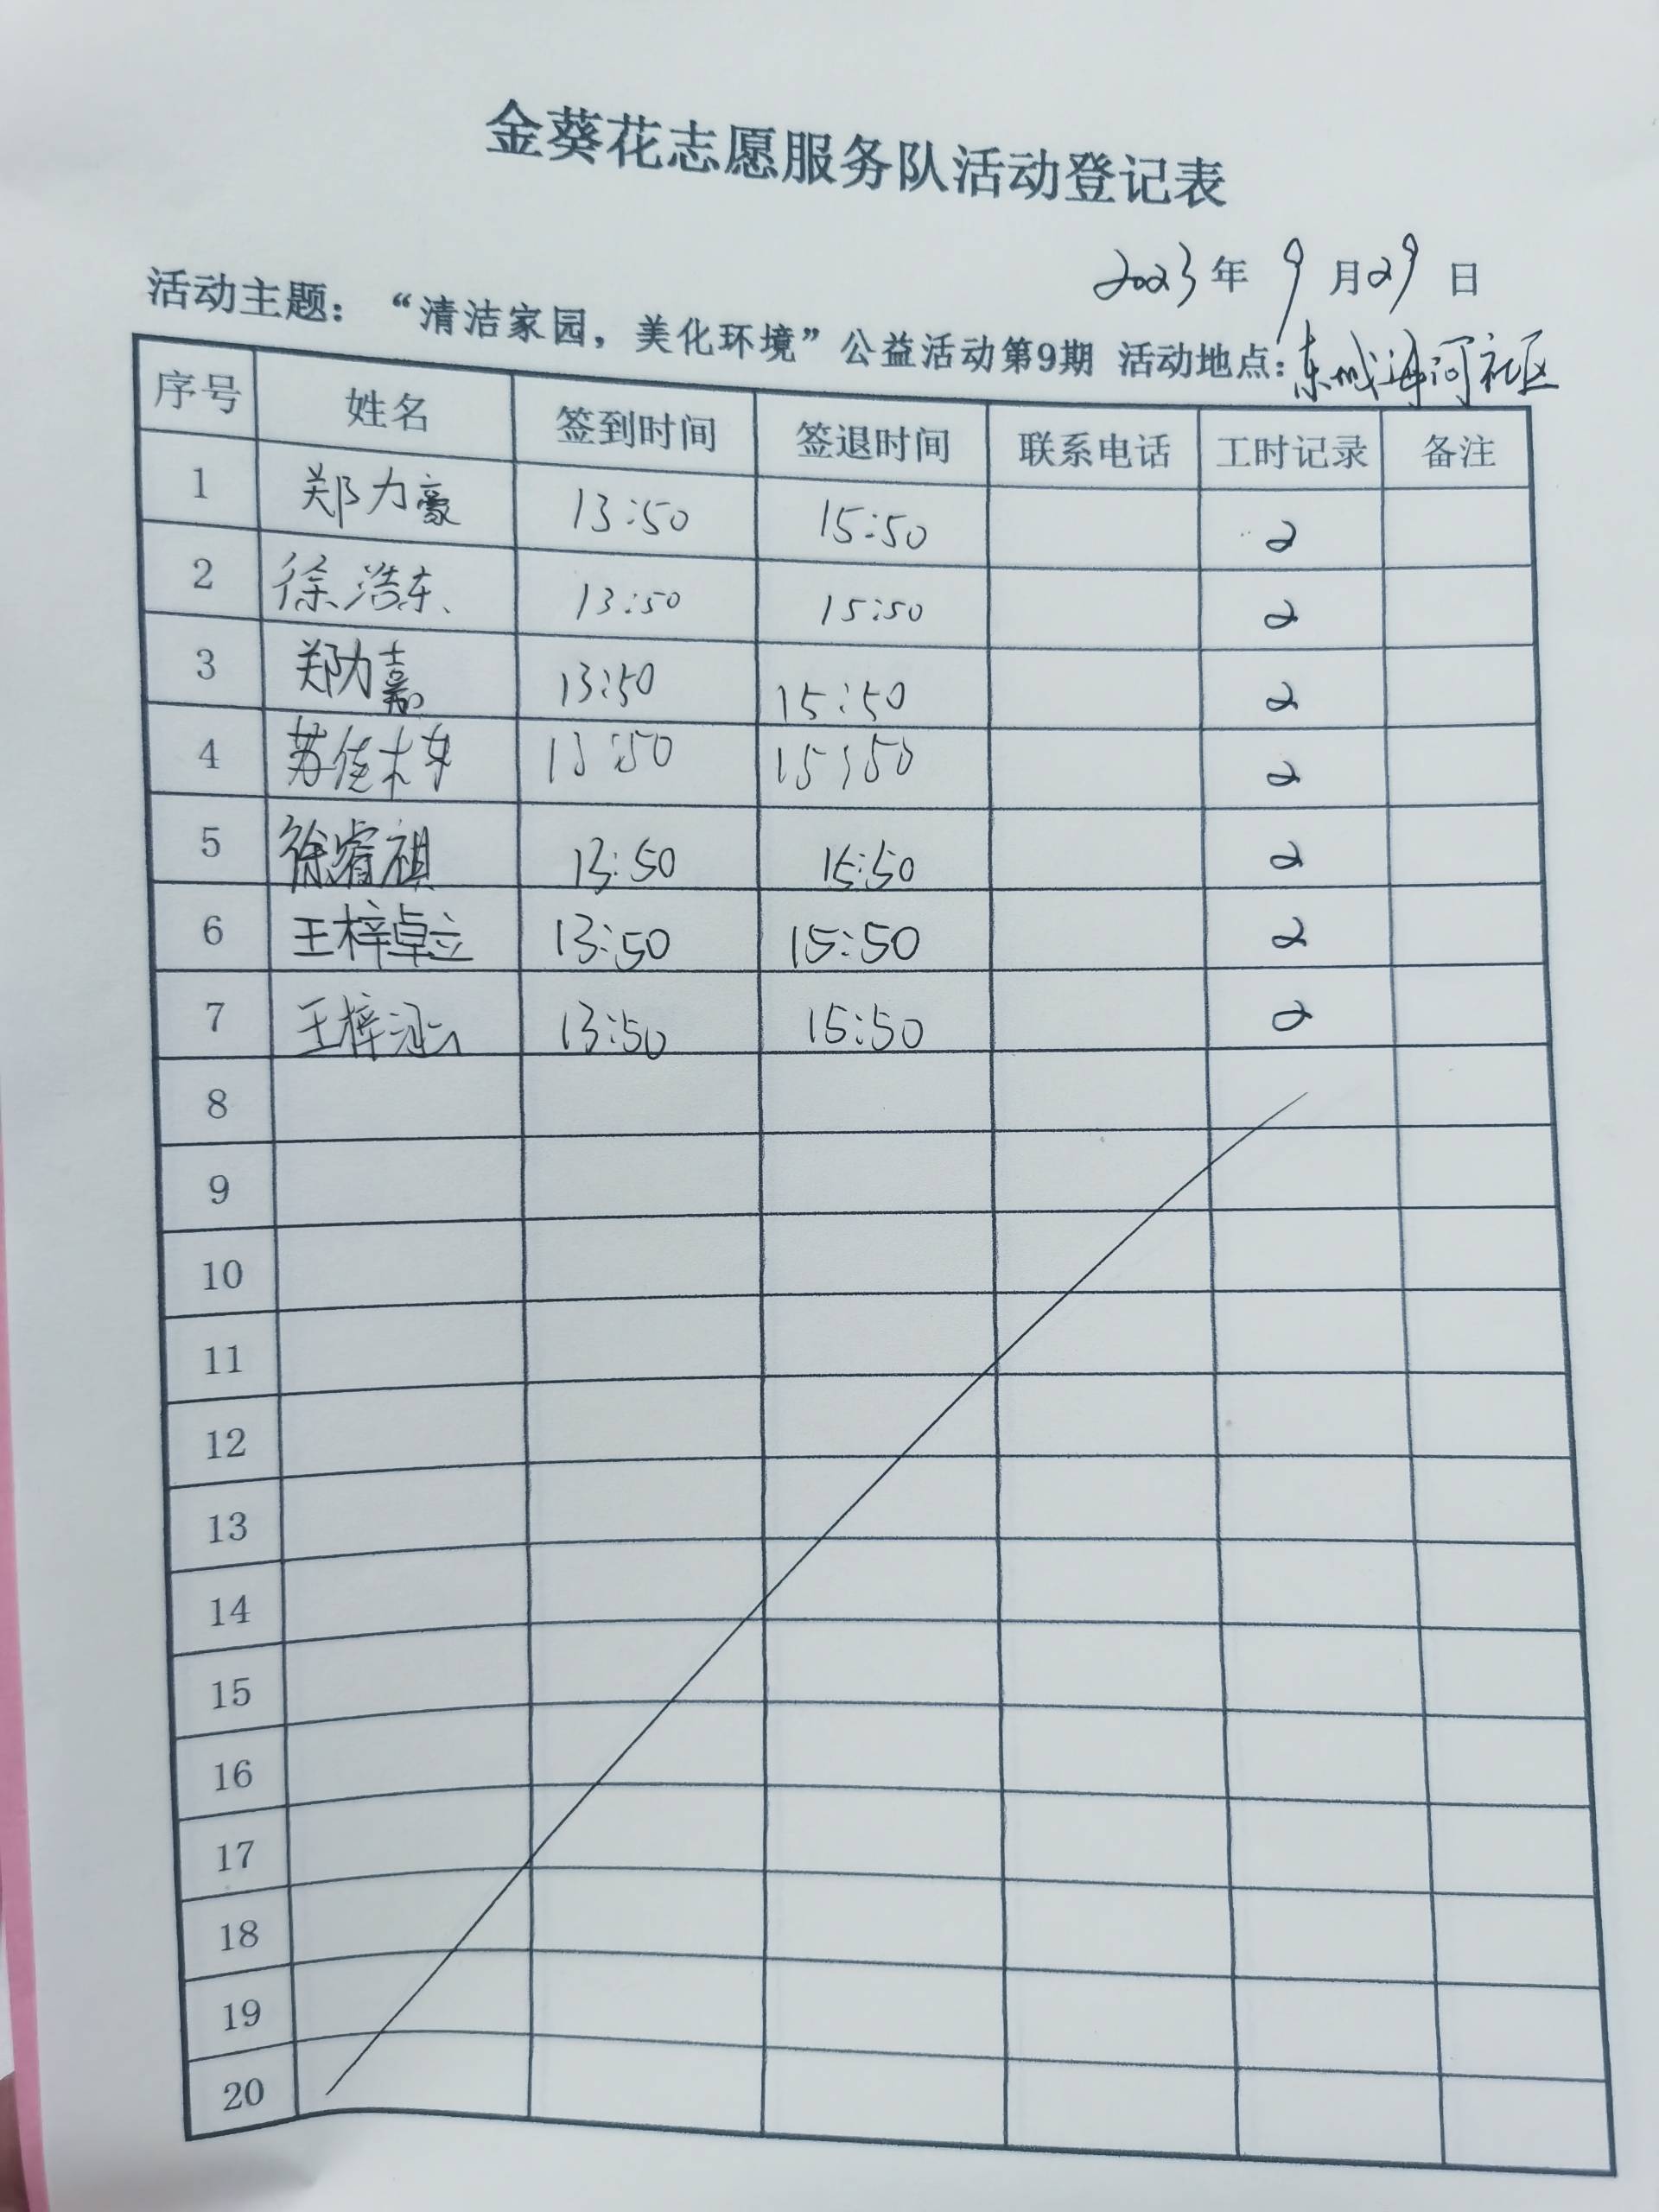 金葵花志愿服务队活动登记表
2023年 9月29日
活动主题：“清洁家园，美化环境”公益活动第9期 活动地点：东城海河社区
序号 姓名 签到时间 签退时间 联系电话 工时记录 备注
1 郑力豪 13:50 15:50 2
2 徐浩东 13:50 15:50 2
3 郑力嘉 13:50 15:50 2
4 苏佳 13:50 15:50 2
5 徐睿祺 13:50 15:50 2
6 王梓卓立 13:50 15:50 2
7 王梓涵 13:50 15:50 2
8
9
10
11
12
13
14
15
16
17
18
19
20